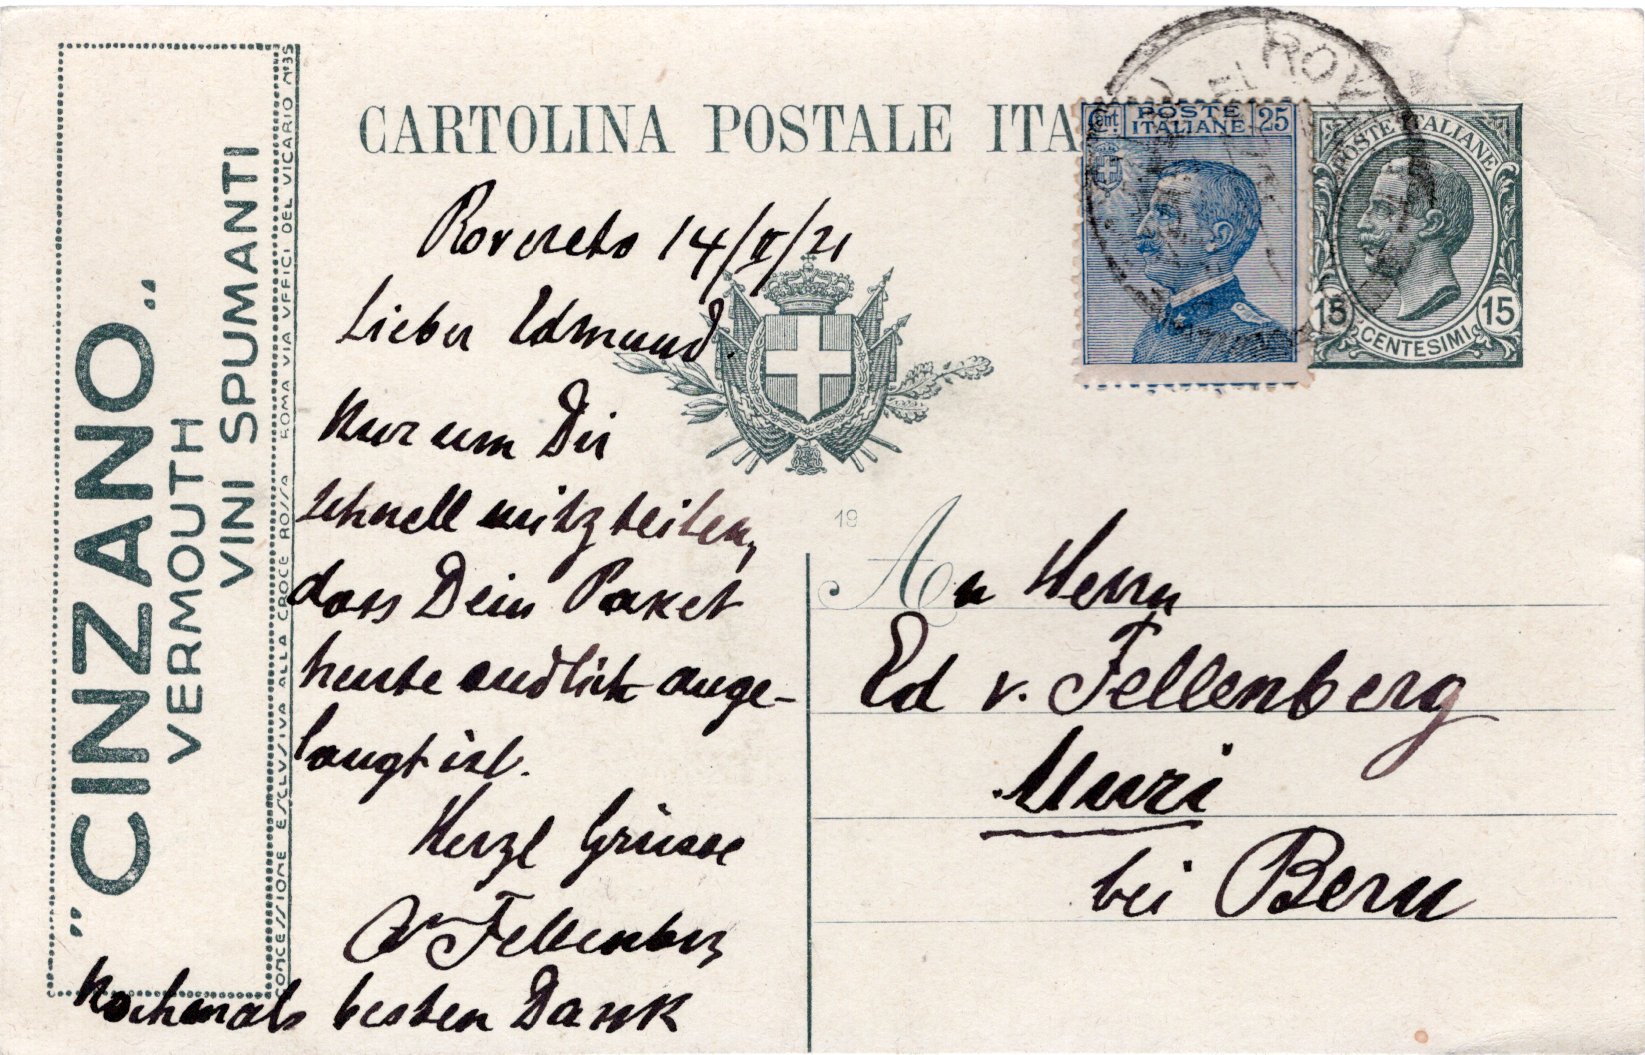 "CINZANO"
VERMOUTH
VINI SPUMANTI
CONCESSIONE ESCLVSIVA ALLA CROCE ROSSA ROMA VIA VFFICI DEL VICARIO Nº35
CARTOLINA POSTALE ITA
ROV
Cent. POSTE ITALIANE 25
POSTE ITALIANE
15 CENTESIMI 15
Rovereto 14/II/21
Lieber Edmund.
Nur um Dir
schnell mitzteilen,
dass Dein Paket
heute endlich ange-
langt ist.
Herzl Grüsse
Fellenberg
Nochmals besten Dank
19
An Herrn
Ed v. Fellenberg
Muri
bei Bern